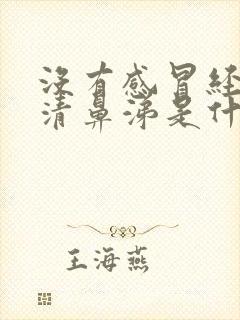 没有感冒经
清鼻涕是什
王海燕